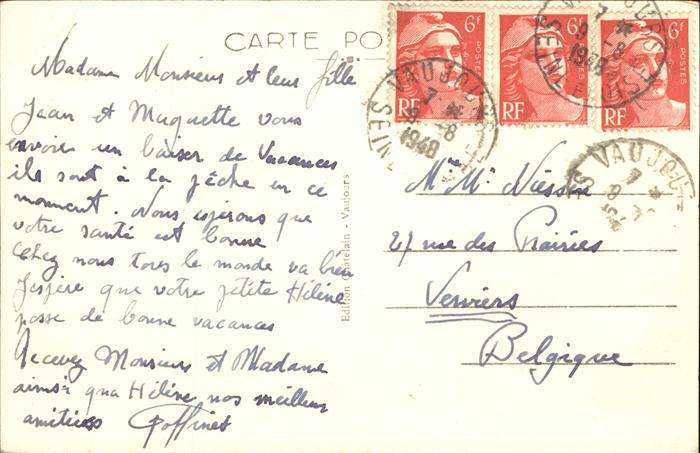 CARTE PO
Madame Monsieur et leur fille
Jean et Muguette vous
envoie un baiser de Vacances
ils sont à la pêche en ce
moment. Nous espérons que
votre santé est bonne
Chez nous tous le monde va bien
J'espère que votre petite Hélène
passe de bonne vacances
Recevez Monsieur et Madame
ainsi qua Hélène nos meilleurs
amitiées Goffinet
Edition Chatelain - Vaujours
6F
6F
6F
POSTES
POSTES
RF
RF
RF
VAUJOU
7 *
9 -8
1948
SEINE
7 *
9 -8
1948
SEINE
VAUJOU
7 *
9
Mme Mr Niessen
27 rue des Prairies
Verviers
Belgique